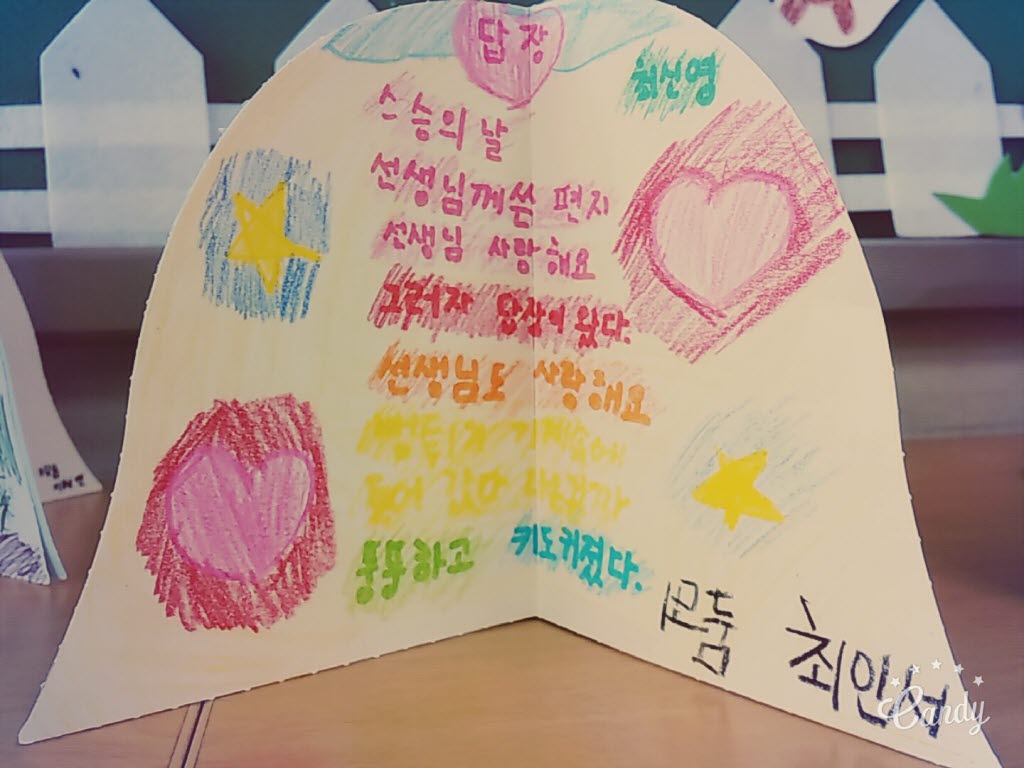 답장
최신영
스승의 날
선생님께 쓴 편지
선생님 사랑해요
그러자 답장이 왔다.
선생님도 사랑해요
풍풍하고 키도커졌다.
모둠 최인서
Candy